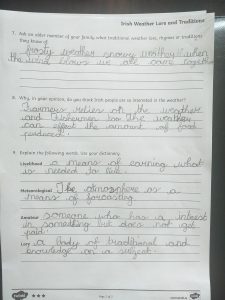 Irish Weather Lore and Traditions
7. Ask an older member of your family what traditional weather lore, rhymes or traditions
they know of.
frosty weather snowy weather when
the wind blows we all come together
8. Why, in your opinion, do you think Irish people are so interested in the weather?
Farmers relies on the weather
and fishermen too. The weather
can effect the amount of food
produced.
9. Explain the following words. Use your dictionary.
Livelihood a means of earning what
is needed to live.
Meteorological The atmosphere as a
means of forcasting.
Amateur someone who has a intrest
in something but does not get
paid.
Lore a body of traditional and
knowledge on a subject.
twinkl